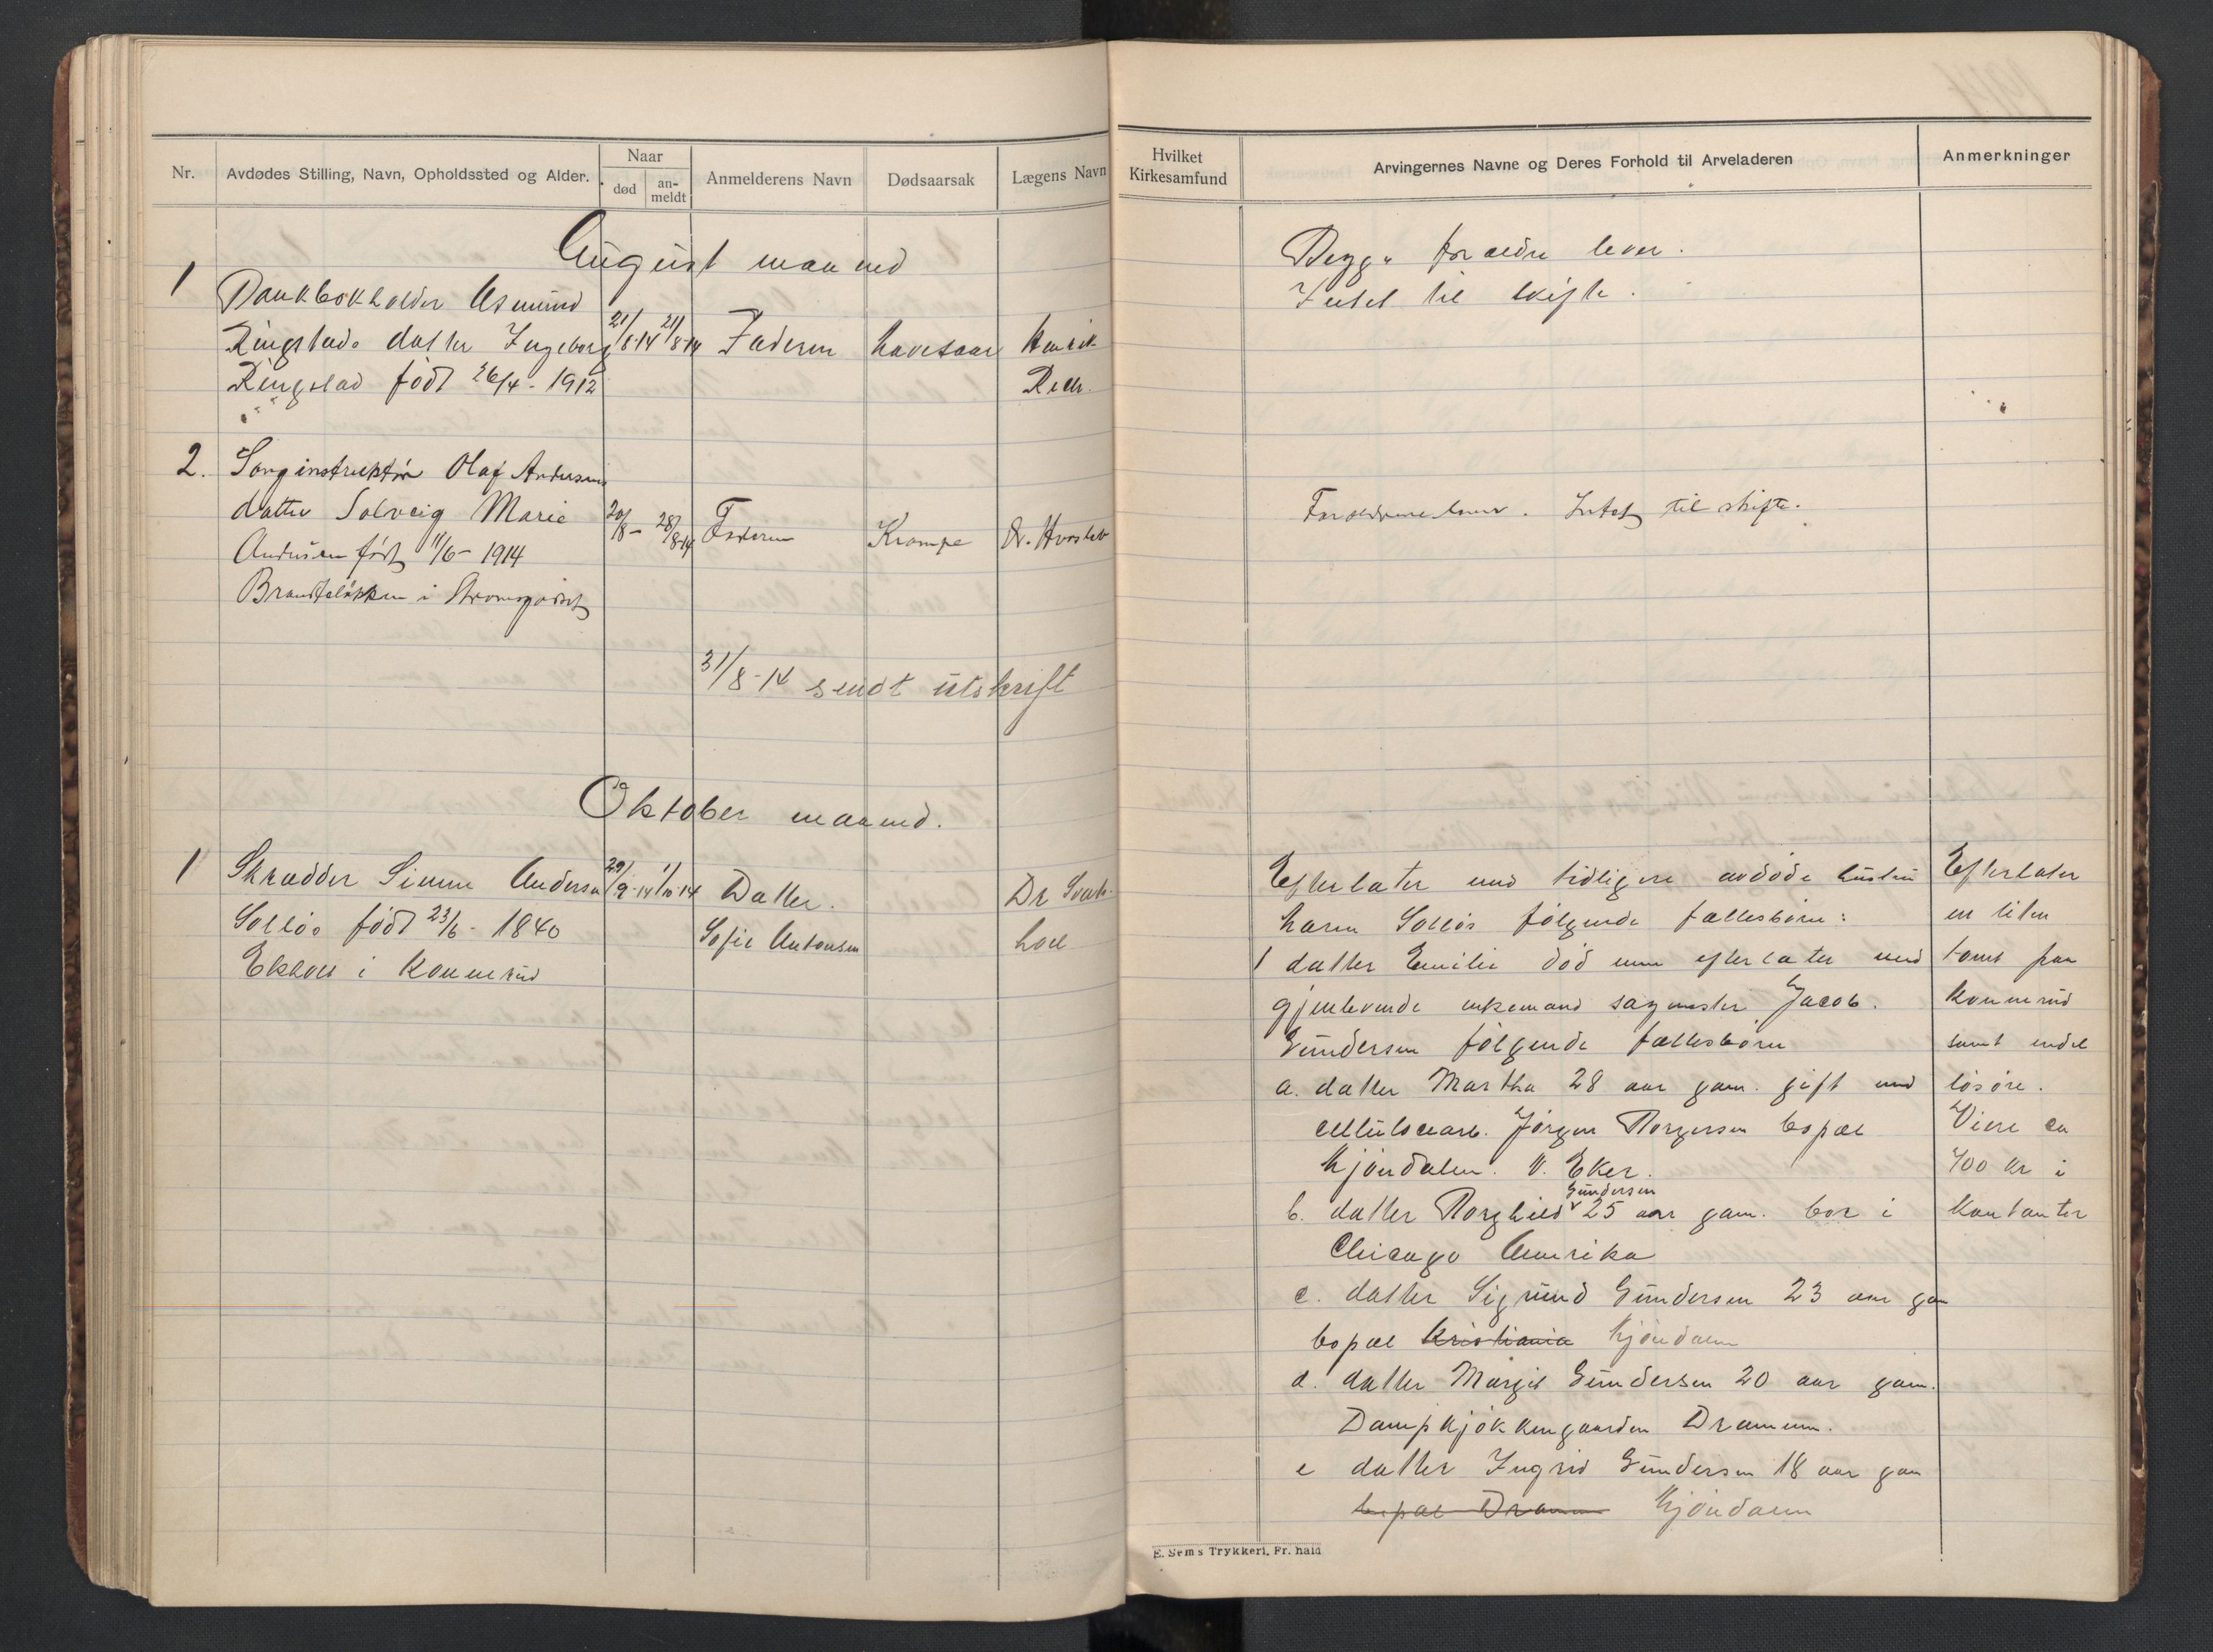 1914
Nr.
Avdødes Stilling, Navn, Opholdssted og Alder.
Naar
død
an-
meldt
Anmelderens Navn
Dødsaarsak
Lægens Navn
August maaned
1
Bankbokholder Asmund
Ringstads datter Ingeborg 21/8-14 21/8-14 Faderen Henrik
Ringstad født 26/4-1912
2. Sanginstruktør Olaf Andersens
datter Solveig Marie 20/8- 28/8-14 Faderen Krampe
Andersen født 11/6-1914
i Strømsgodset
31/8-14 sendt utskrift
Oktober maaned.
1 Skrædder Simen Andersen 29/9-14 1/10-14 Datter. Dr
Solløs født 23/6-1840 Sofie Antonsen
Ekholt i Konnerud
Hvilket
Kirkesamfund
Arvingernes Navne og Deres Forhold til Arveladeren
Anmerkninger
Begge forældre lever.
Intet til skifte.
Forældrene lever. Intet til skifte.
Efterlater med tidligere avdøde hustru
Karen Solløs følgende fællesbørn:
1 datter Emilie død men efterlater med
gjenlevende enkemand sagmester Jacob
Gundersen følgende fællesbørn
a. datter Martha 28 aar gam. gift med
cellulosearb. Jørgen Borgersen bopæl
Mjøndalen. N. Eker.
Gundersen
b. datter Borghild 25 aar gam. bor i
Chicago Amerika
c. datter Sigrund Gundersen 23 aar gam
bopæl Kristiania Mjøndalen
d. datter Margit Gundersen 20 aar gam.
Dampkjøkkengaarden Drammen.
e datter Ingrid Gundersen 18 aar gam
bopæl Drammen Mjøndalen
Efterlater
en liten
tomt paa
Konnerud
samt endel
løsøre.
Videre ca
700 kr i
kontanter
E. Sem s Trykkeri, Fr. hald